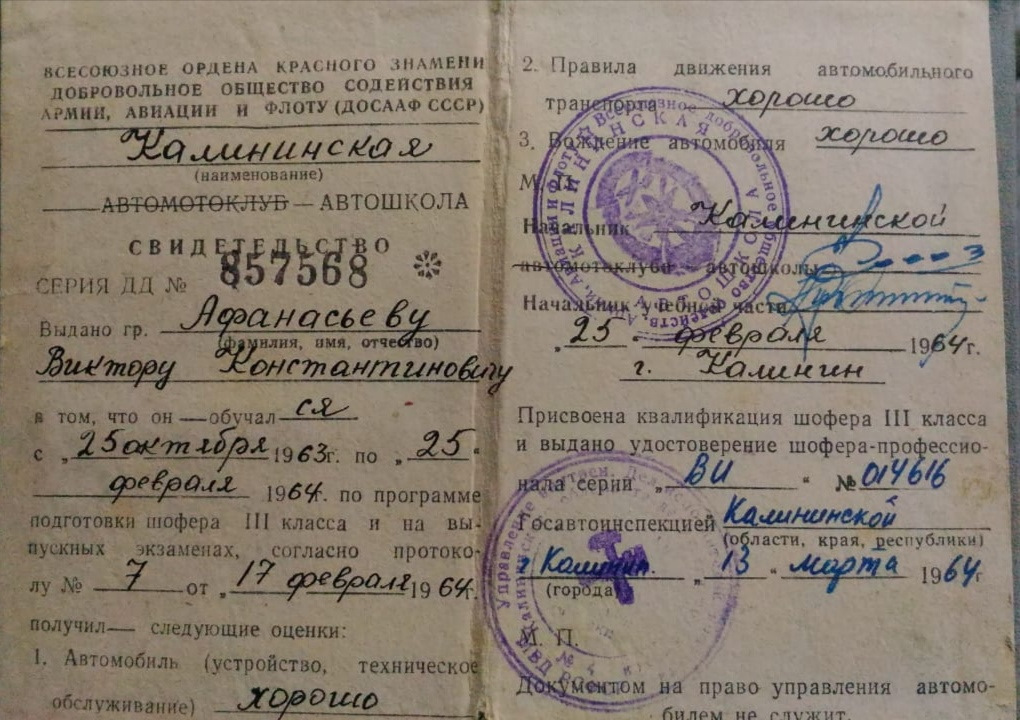 ВСЕСОЮЗНОЕ ОРДЕНА КРАСНОГО ЗНАМЕНИ
ДОБРОВОЛЬНОЕ ОБЩЕСТВО СОДЕЙСТВИЯ
АРМИИ, АВИАЦИИ И ФЛОТУ (ДОСААФ СССР)
Калининская
(наименование)
АВТОМОТОКЛУБ — АВТОШКОЛА
СВИДЕТЕЛЬСТВО
СЕРИЯ ДД № 857568
Выдано гр. Афанасьеву
(фамилия, имя, отчество)
Виктору Константиновичу
в том, что он — обучал ся
с „ 25 октября 1963г. по „ 25 "
февраля 1964. по программе
подготовки шофера III класса и на вы-
пускных экзаменах, согласно протоко-
лу № 7 от „ 17 февраля 1964г.
получил — следующие оценки:
1. Автомобиль (устройство, техническое
обслуживание) хорошо
2. Правила движения автомобильного
транспорта хорошо
3. Вождение автомобиля хорошо
М. П.
Начальник Калининской
автомотоклуба — автошколы
Начальник учебной части
„ 25 " февраля 1964г.
г. Калинин
Присвоена квалификация шофера III класса
и выдано удостоверение шофера-профессио-
нала серии „ ВИ " № 014616
Госавтоинспекцией Калининской
(области, края, республики)
г Калинин. „ 13 " марта 1964г
(города)
М. П.
Документом на право управления автомо-
билем не служит.